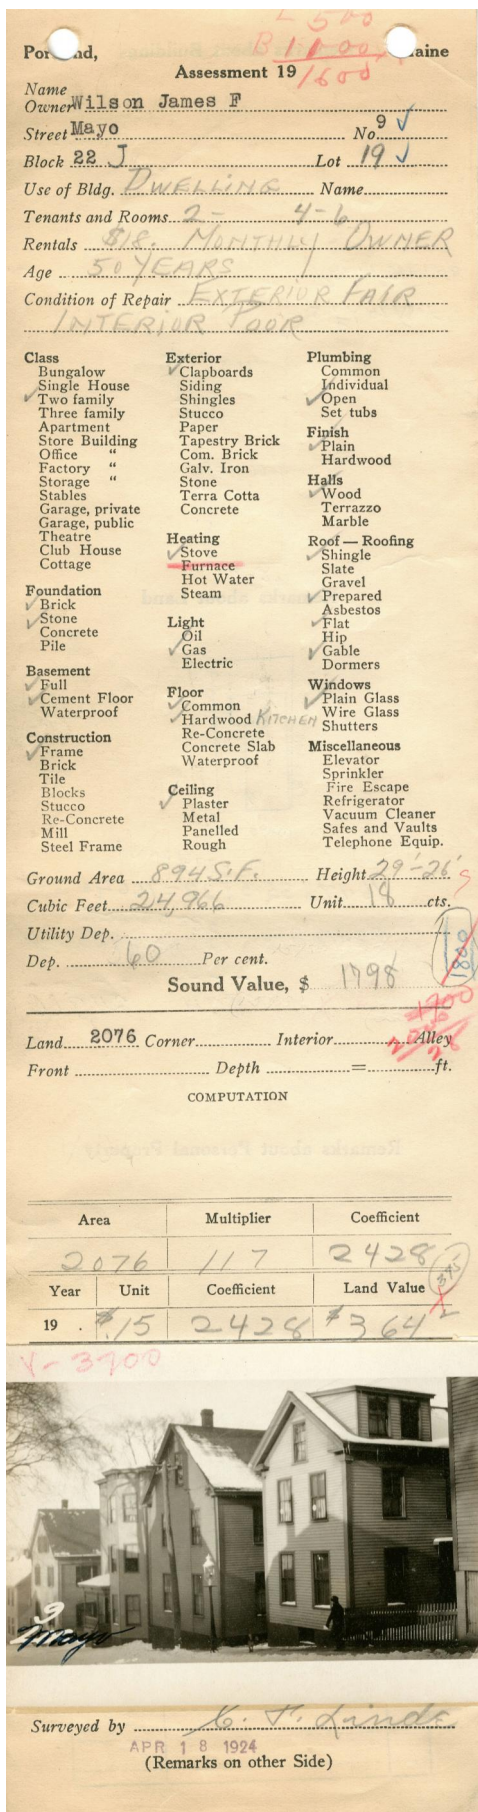 L 500
B 1100
1600
Portland, Maine
Assessment 19
Name
Owner Wilson James F
Street Mayo No. 9 ✓
Block 22 J Lot 19 ✓
Use of Bldg. DWELLING Name
Tenants and Rooms 2- 4-6
Rentals $18. MONTHLY OWNER
Age 50 YEARS
Condition of Repair EXTERIOR FAIR
INTERIOR POOR
Class
Bungalow
Single House
✓ Two family
Three family
Apartment
Store Building
Office "
Factory "
Storage "
Stables
Garage, private
Garage, public
Theatre
Club House
Cottage
Foundation
✓ Brick
✓ Stone
Concrete
Pile
Basement
✓ Full
✓ Cement Floor
Waterproof
Construction
✓ Frame
Brick
Tile
Blocks
Stucco
Re-Concrete
Mill
Steel Frame
Exterior
✓ Clapboards
Siding
Shingles
Stucco
Paper
Tapestry Brick
Com. Brick
Galv. Iron
Stone
Terra Cotta
Concrete
Heating
✓ Stove
Furnace
Hot Water
Steam
Light
Oil
✓ Gas
Electric
Floor
✓ Common
✓ Hardwood KITCHEN
Re-Concrete
Concrete Slab
Waterproof
Ceiling
✓ Plaster
Metal
Panelled
Rough
Plumbing
Common
Individual
✓ Open
Set tubs
Finish
✓ Plain
Hardwood
Halls
✓ Wood
Terrazzo
Marble
Roof — Roofing
✓ Shingle
Slate
Gravel
✓ Prepared
Asbestos
✓ Flat
Hip
✓ Gable
Dormers
Windows
✓ Plain Glass
Wire Glass
Shutters
Miscellaneous
Elevator
Sprinkler
Fire Escape
Refrigerator
Vacuum Cleaner
Safes and Vaults
Telephone Equip.
Ground Area 894 S.F. Height 29'-26'
Cubic Feet 24,966 Unit 18 cts.
Utility Dep.
Dep. 60 Per cent.
1800
Sound Value, $ 1798
Land 2076 Corner Interior Alley
Front Depth = ft.
COMPUTATION
Area Multiplier Coefficient
2076 117 2428
Year Unit Coefficient Land Value
375
19 . $.15 2428 $364
V-3700
9
Mayo
Surveyed by
APR 18 1924
(Remarks on other Side)